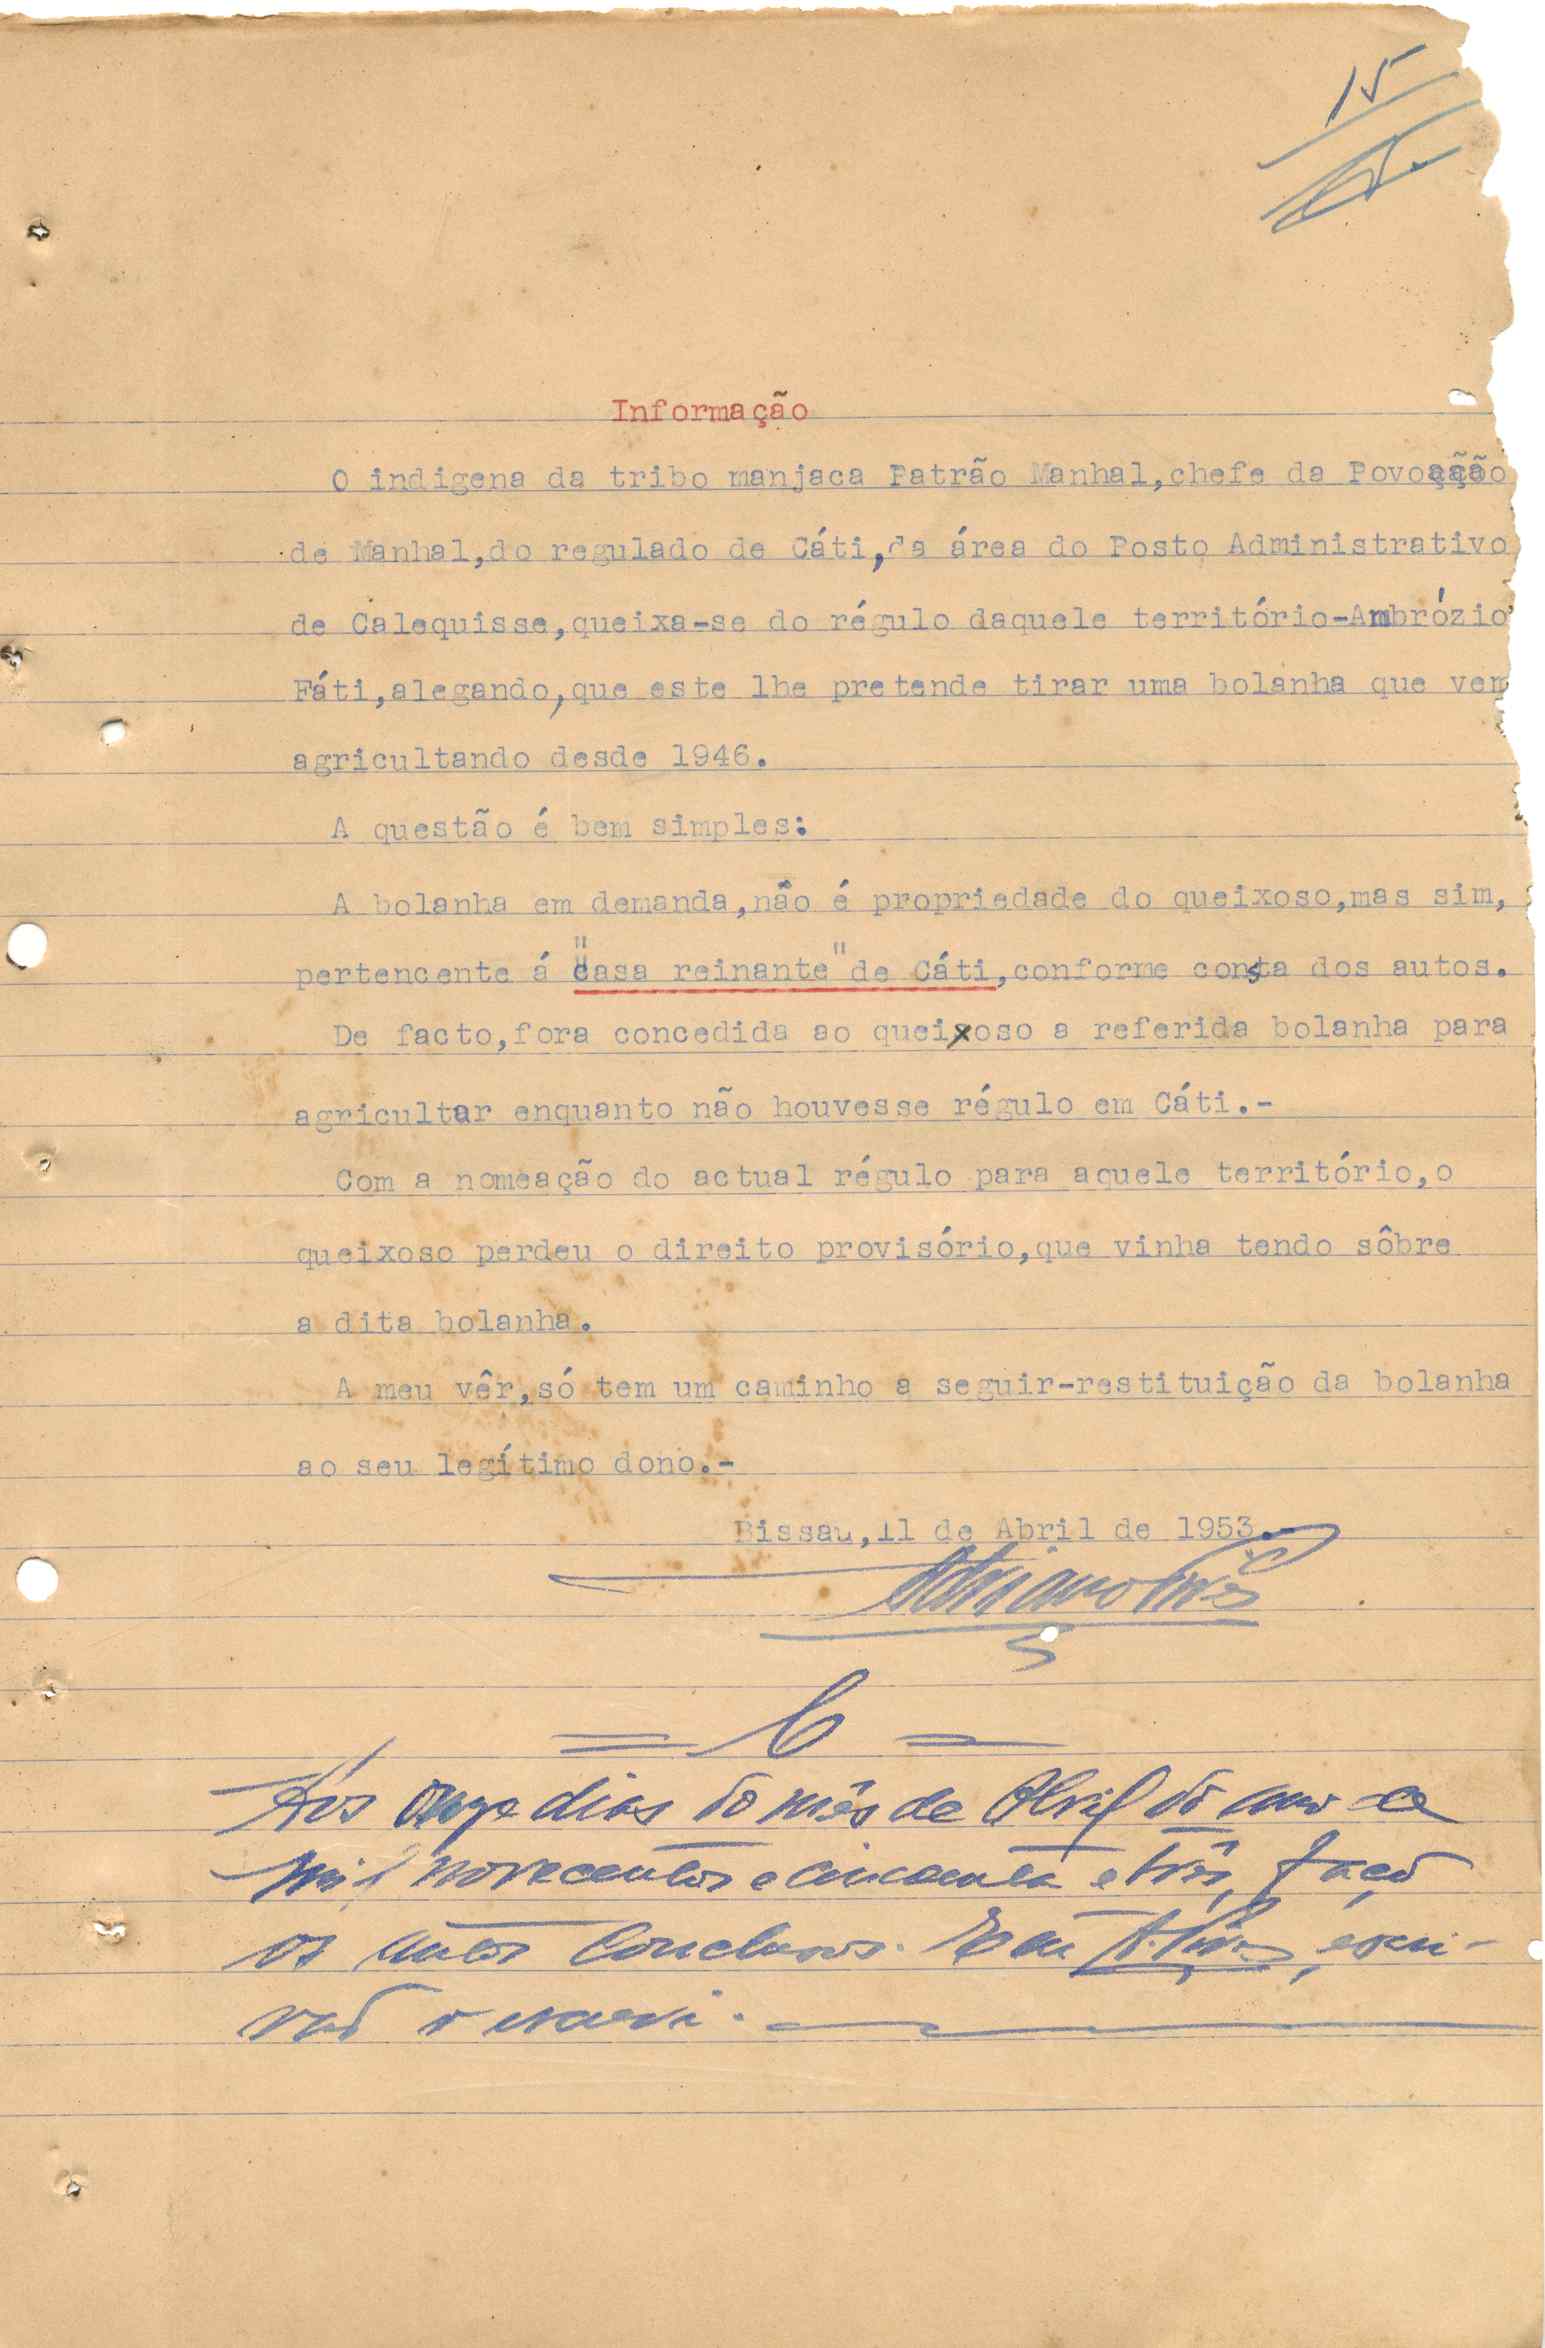 15
Informação
O indigena da tribo manjaca Patrão Manhal,chefe da Povoação
de Manhal,do regulado de Cáti,da área do Posto Administrativo
de Calequisse,queixa-se do régulo daquele território-Ambrózio
Fáti,alegando,que este lhe pretende tirar uma bolanha que vem
agricultando desde 1946.
A questão é bem simples:
A bolanha em demanda,não é propriedade do queixoso,mas sim,
pertencente á "casa reinante" de Cáti,conforme consta dos autos.
De facto,fora concedida ao queixoso a referida bolanha para
agricultar enquanto não houvesse régulo em Cáti.-
Com a nomeação do actual régulo para aquele território,o
queixoso perdeu o direito provisório,que vinha tendo sôbre
a dita bolanha.
A meu vêr,só tem um caminho a seguir-restituição da bolanha
ao seu legítimo dono.-
Bissau,11 de Abril de 1953.-
= C =
Aos onze dias do mês de Abril do ano de
mil novecentos e cincoenta e três, faço
os autos conclusos. E eu escri-
vão o escrevi.